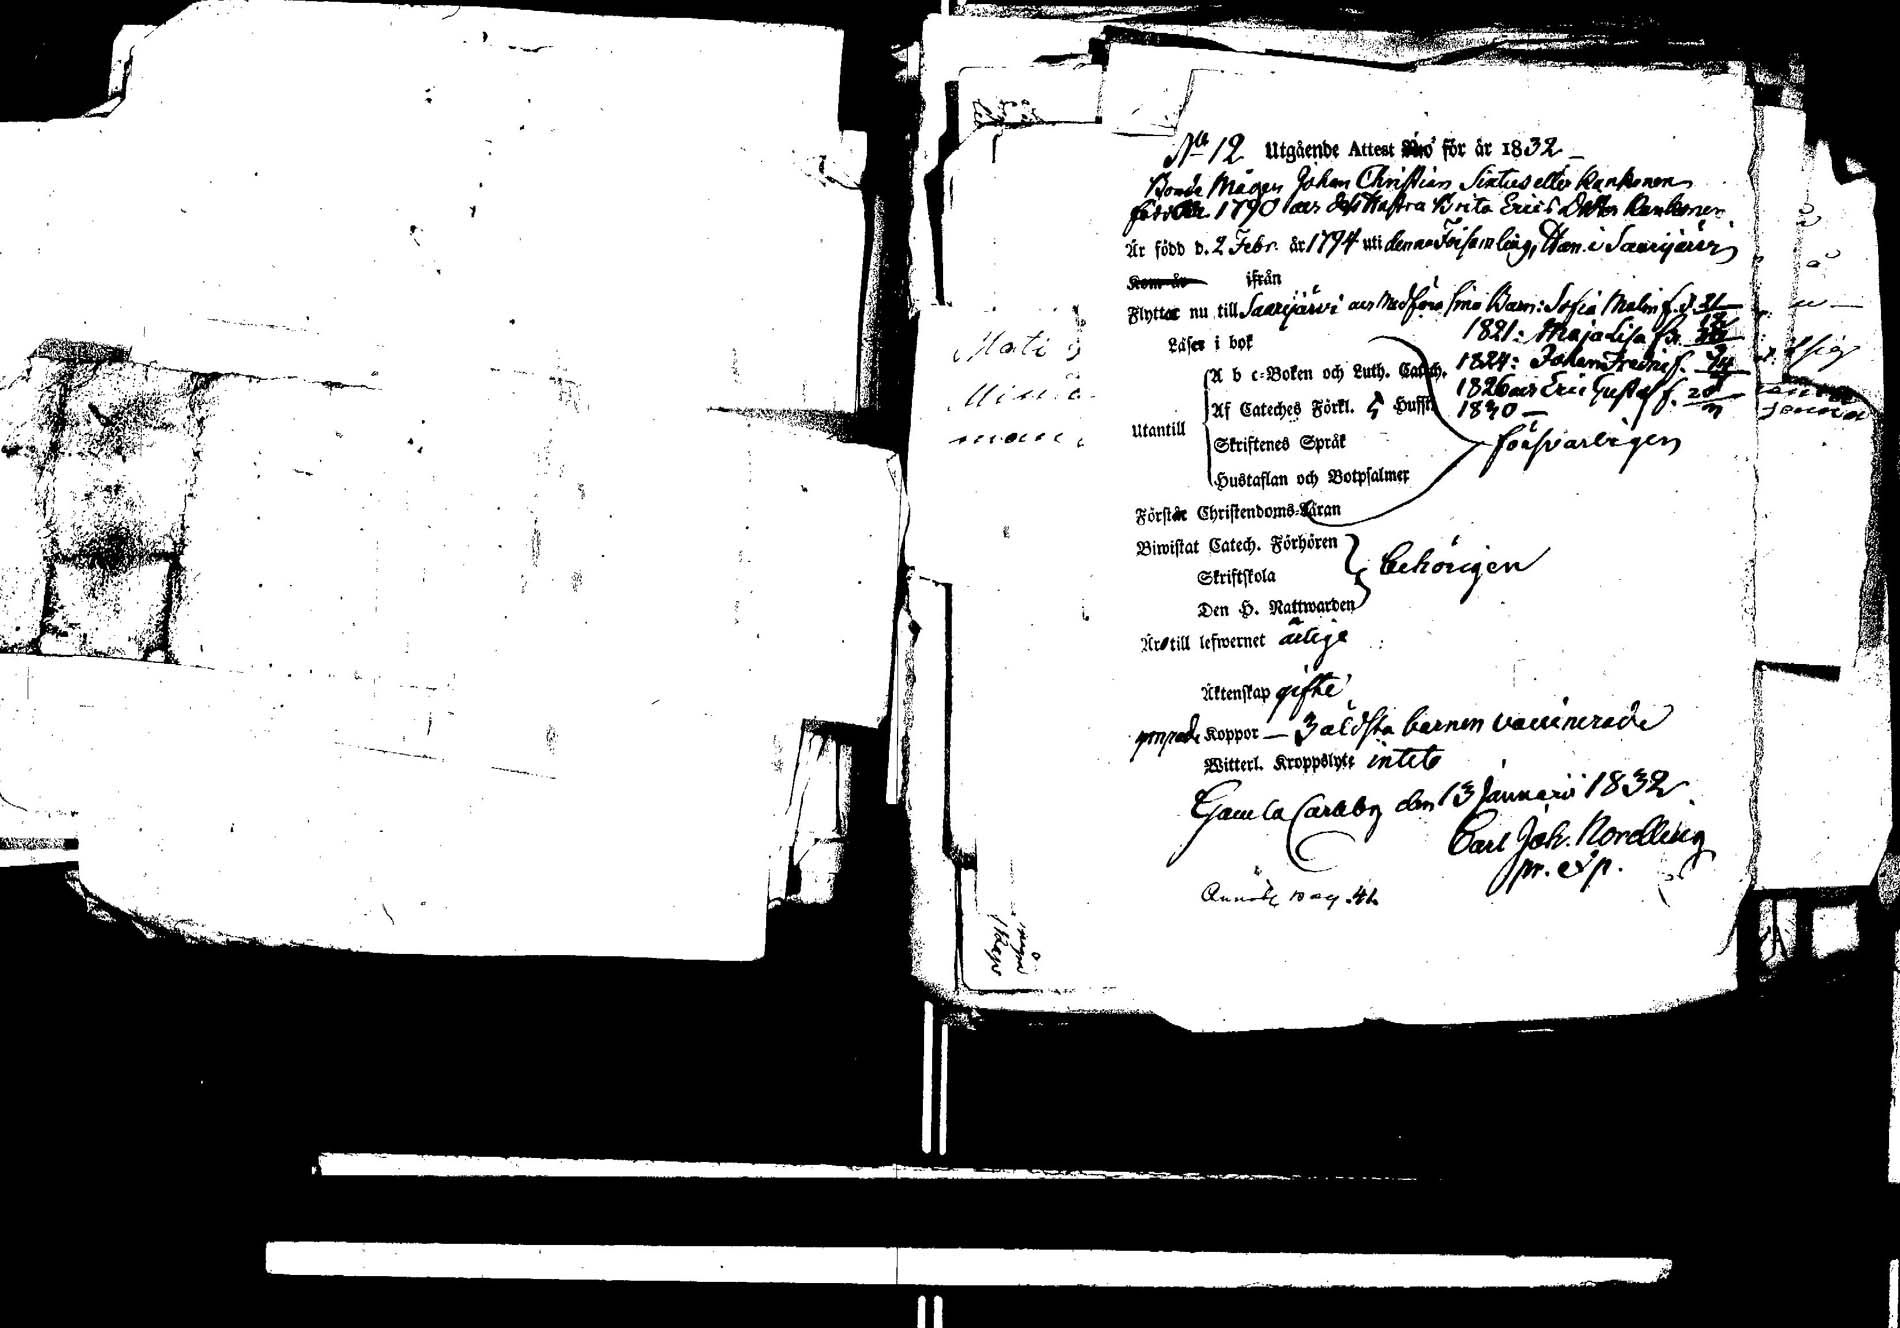 No 12 Utgående Attest för år 1832 –
Bonde Mågen Johan Christian Sixtus eller Kankonen
född 1790 och dess Hustru Brita Erics Dotter Kankonen
Är född d. 2 Febr. år 1794 uti denna Församling, Han i Saarijärvi
Kom år ifrån
Flyttar nu till Saarijärvi och Medföra sina Barn: Sofia Malm f. d. 21
1821: Maja Lisa f.
Läser i bok
1824: Johan Fredric f.
A b c-Boken och Luth. Catech.
1826 och Eric Gustaf f. 20
Af Cateches Förkl. Hufst.
1830 –
Utantill
försvarligen
Skriftenes Språk
Hustaflan och Botpsalmer
Förstår Christendoms-Läran
Biwistat Catech. Förhören
behörigen
Skriftskola
Den H. Nattwarden
Är till lefwernet ärlige
Äktenskap gifte
Koppor – 3 äldsta barnen vaccinerade
Witterl. Kroppslyte intet
Gamla Carleby den 13 Januari 1832
Carl Joh. Nordling
pr. exp.
pag. 41.